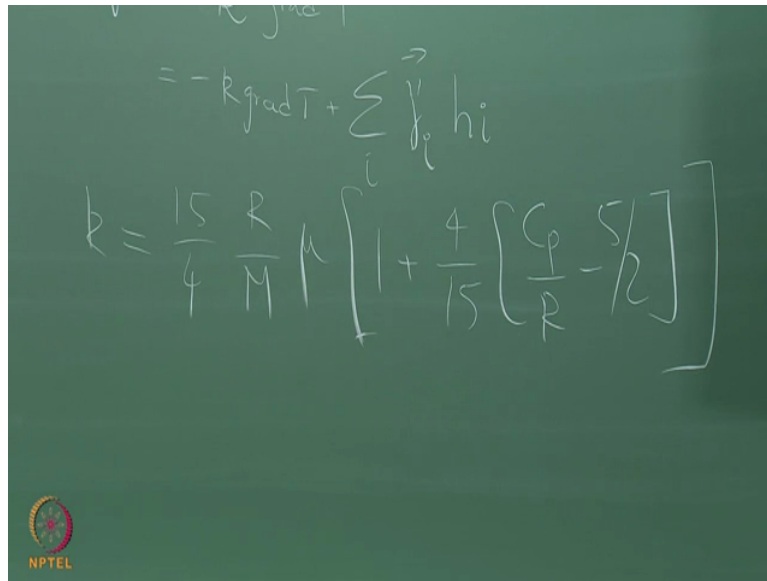 k grad T
= - k grad T + Σ_i j⃗_i h_i
k = 15/4 R/M μ [ 1 + 4/15 [ Cp/R - 5/2 ] ]
NPTEL